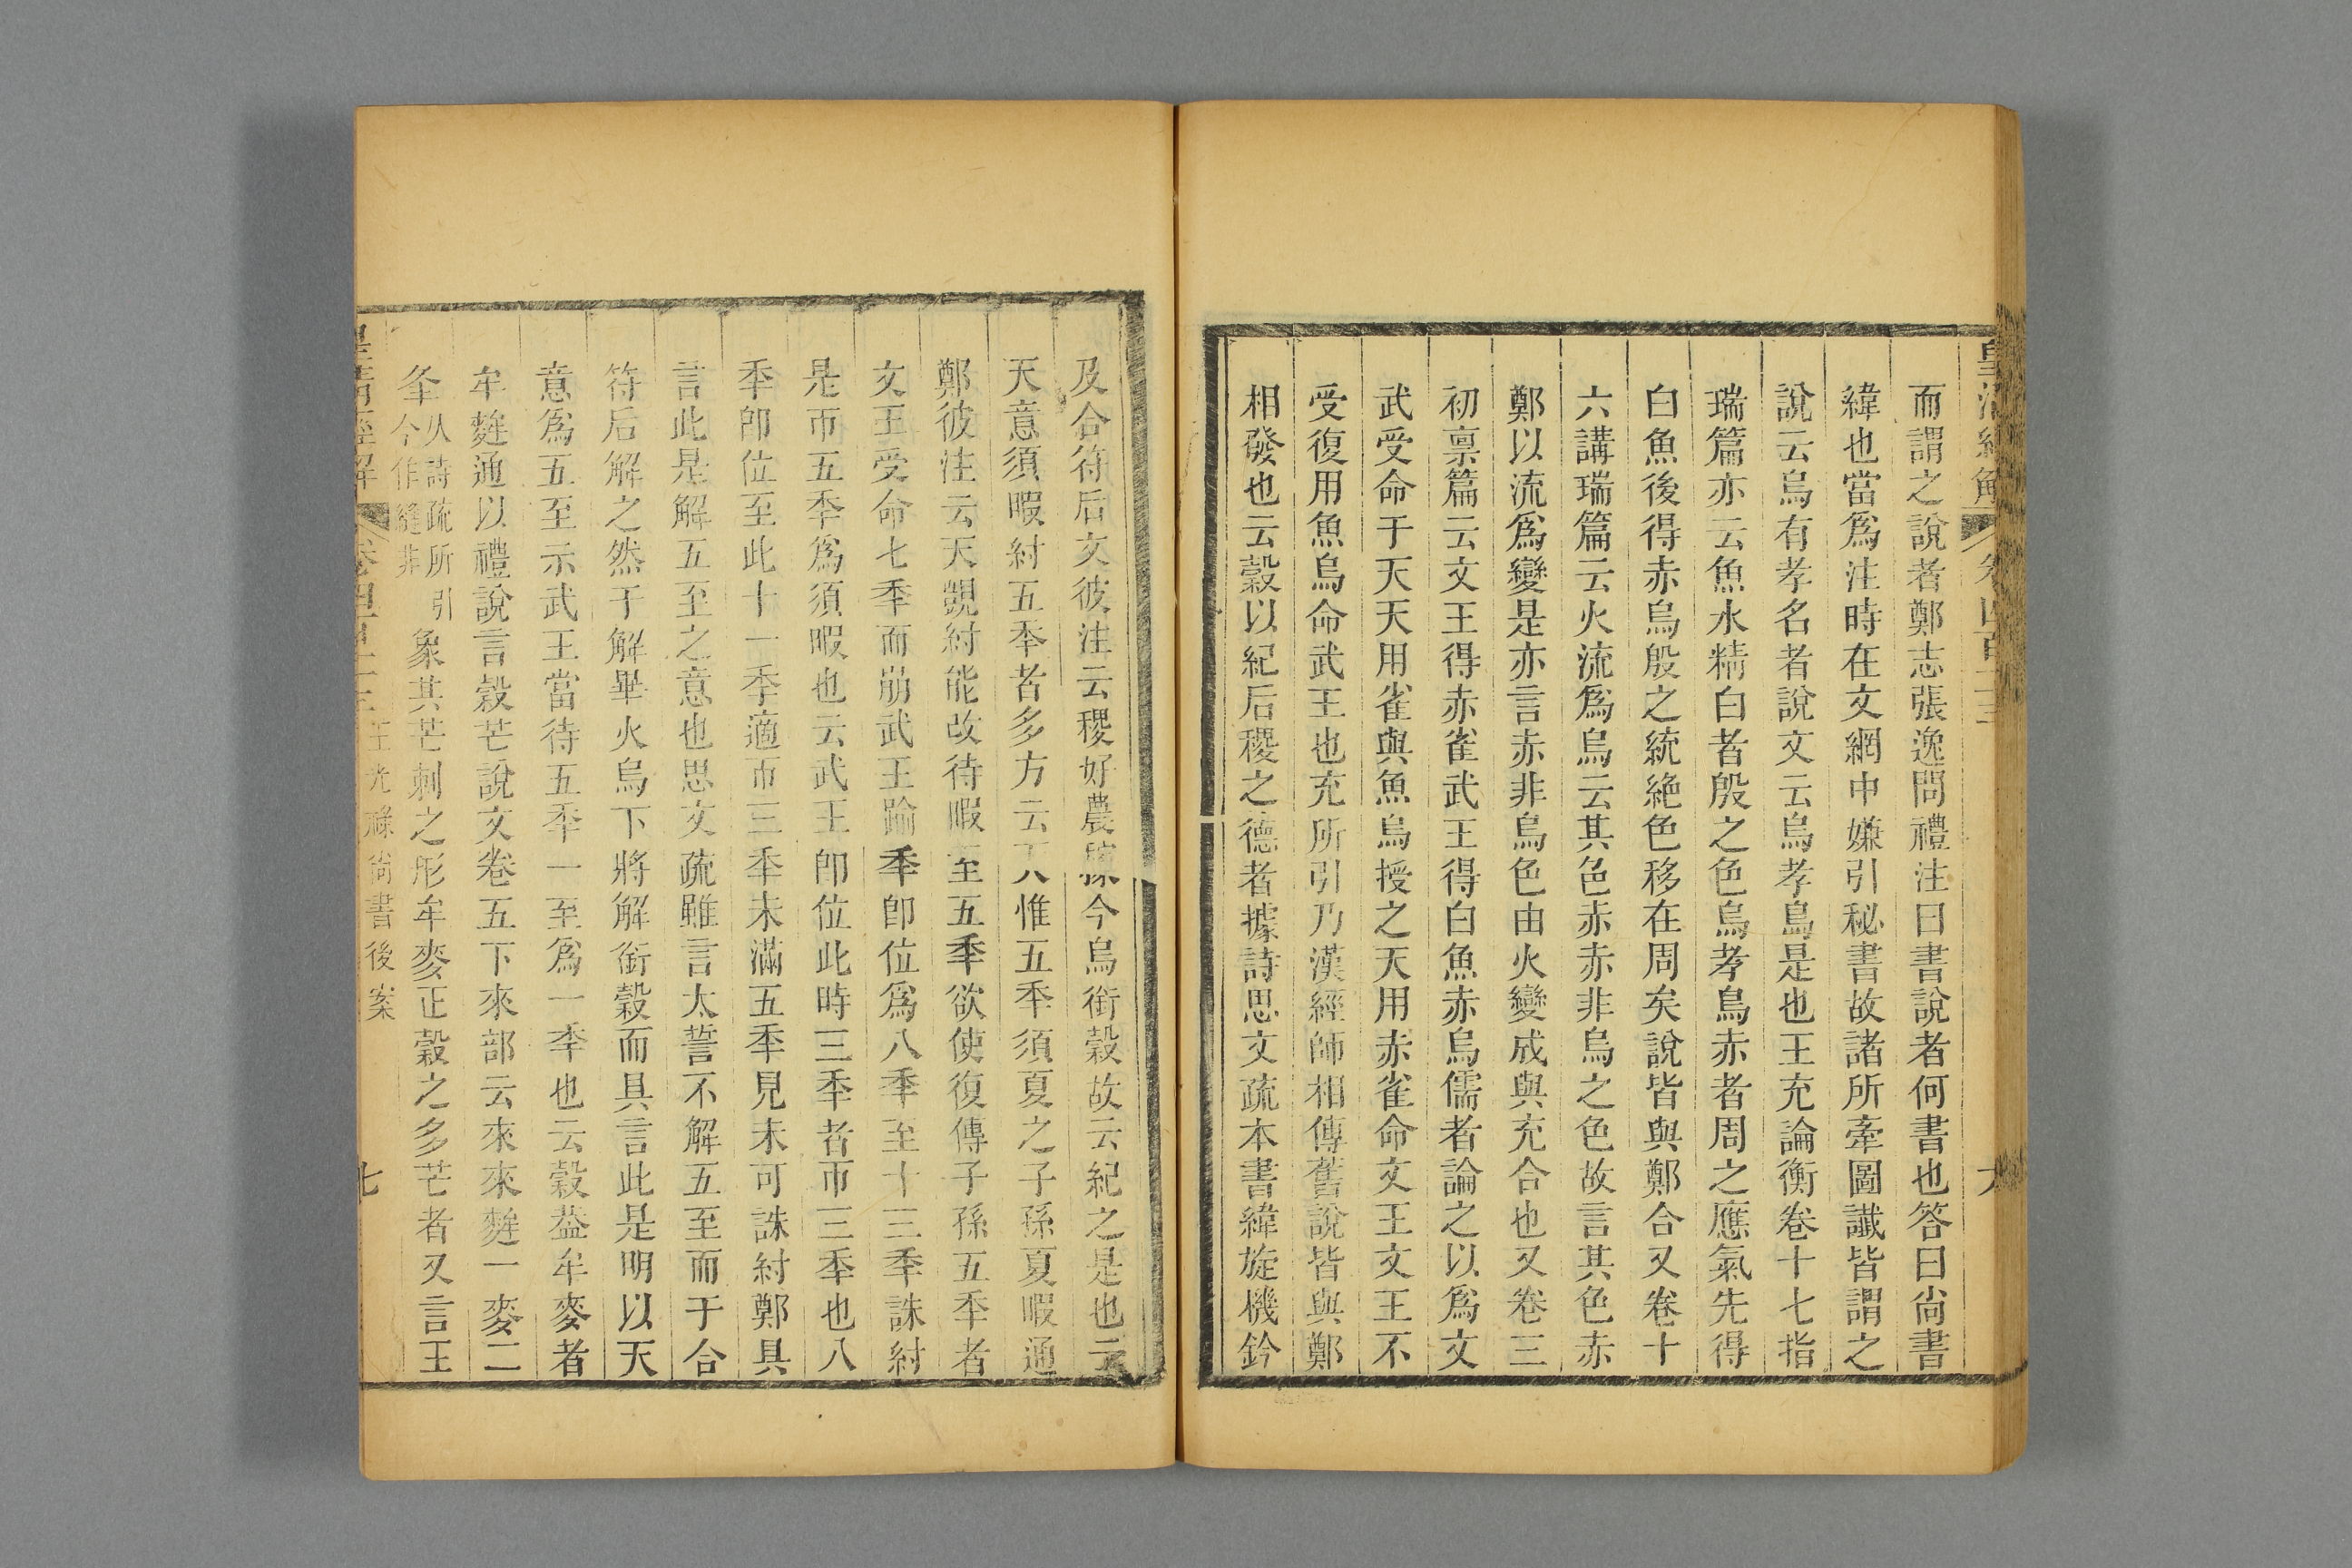 皇清經解
卷四百二三
而謂之說者鄭志張逸問禮注曰書說者何書也答曰尙書
緯也當爲注時在文網中嫌引秘書故諸所牽圖讖皆謂之
說云烏有孝名者說文云烏孝鳥是也王充論衡卷十七指
瑞篇亦云魚水精白者殷之色烏孝鳥赤者周之應氣先得
白魚後得赤烏殷之統絶色移在周矣說皆與鄭合又卷十
六講瑞篇云火流爲烏云其色赤赤非烏之色故言其色赤
鄭以流爲變是亦言赤非烏色由火變成與充合也又卷三
初禀篇云文王得赤雀武王得白魚赤烏儒者論之以爲文
武受命于天天用雀與魚烏授之天用赤雀命文王文王不
受復用魚烏命武王也充所引乃漢經師相傳舊說皆與鄭
相發也云穀以紀后稷之德者據詩思文疏本書緯旋機鈐
及合符后文彼注云稷好農稼今烏銜穀故云紀之是也云
天意須暇紂五秊者多方云天惟五秊須夏之子孫夏暇通
鄭彼注云天覬紂能改待暇至五秊欲使復傳子孫五秊者
文王受命七秊而崩武王踰秊卽位爲八秊至十三秊誅紂
是帀五秊爲須暇也云武王卽位此時三秊者帀三秊也八
秊卽位至此十一秊適帀三秊未滿五秊見未可誅紂鄭具
言此是解五至之意也思文疏雖言太誓不解五至而于合
符后解之然于解畢火烏下將解銜穀而具言此是明以天
意爲五至示武王當待五秊一至爲一秊也云穀葢牟麥者
牟麰通以禮說言穀芒說文卷五下來部云來來麰一麥二
夆从詩疏所引今作縫非象其芒刺之形牟麥正穀之多芒者又言王
皇清經解
王光祿尙書後案
七